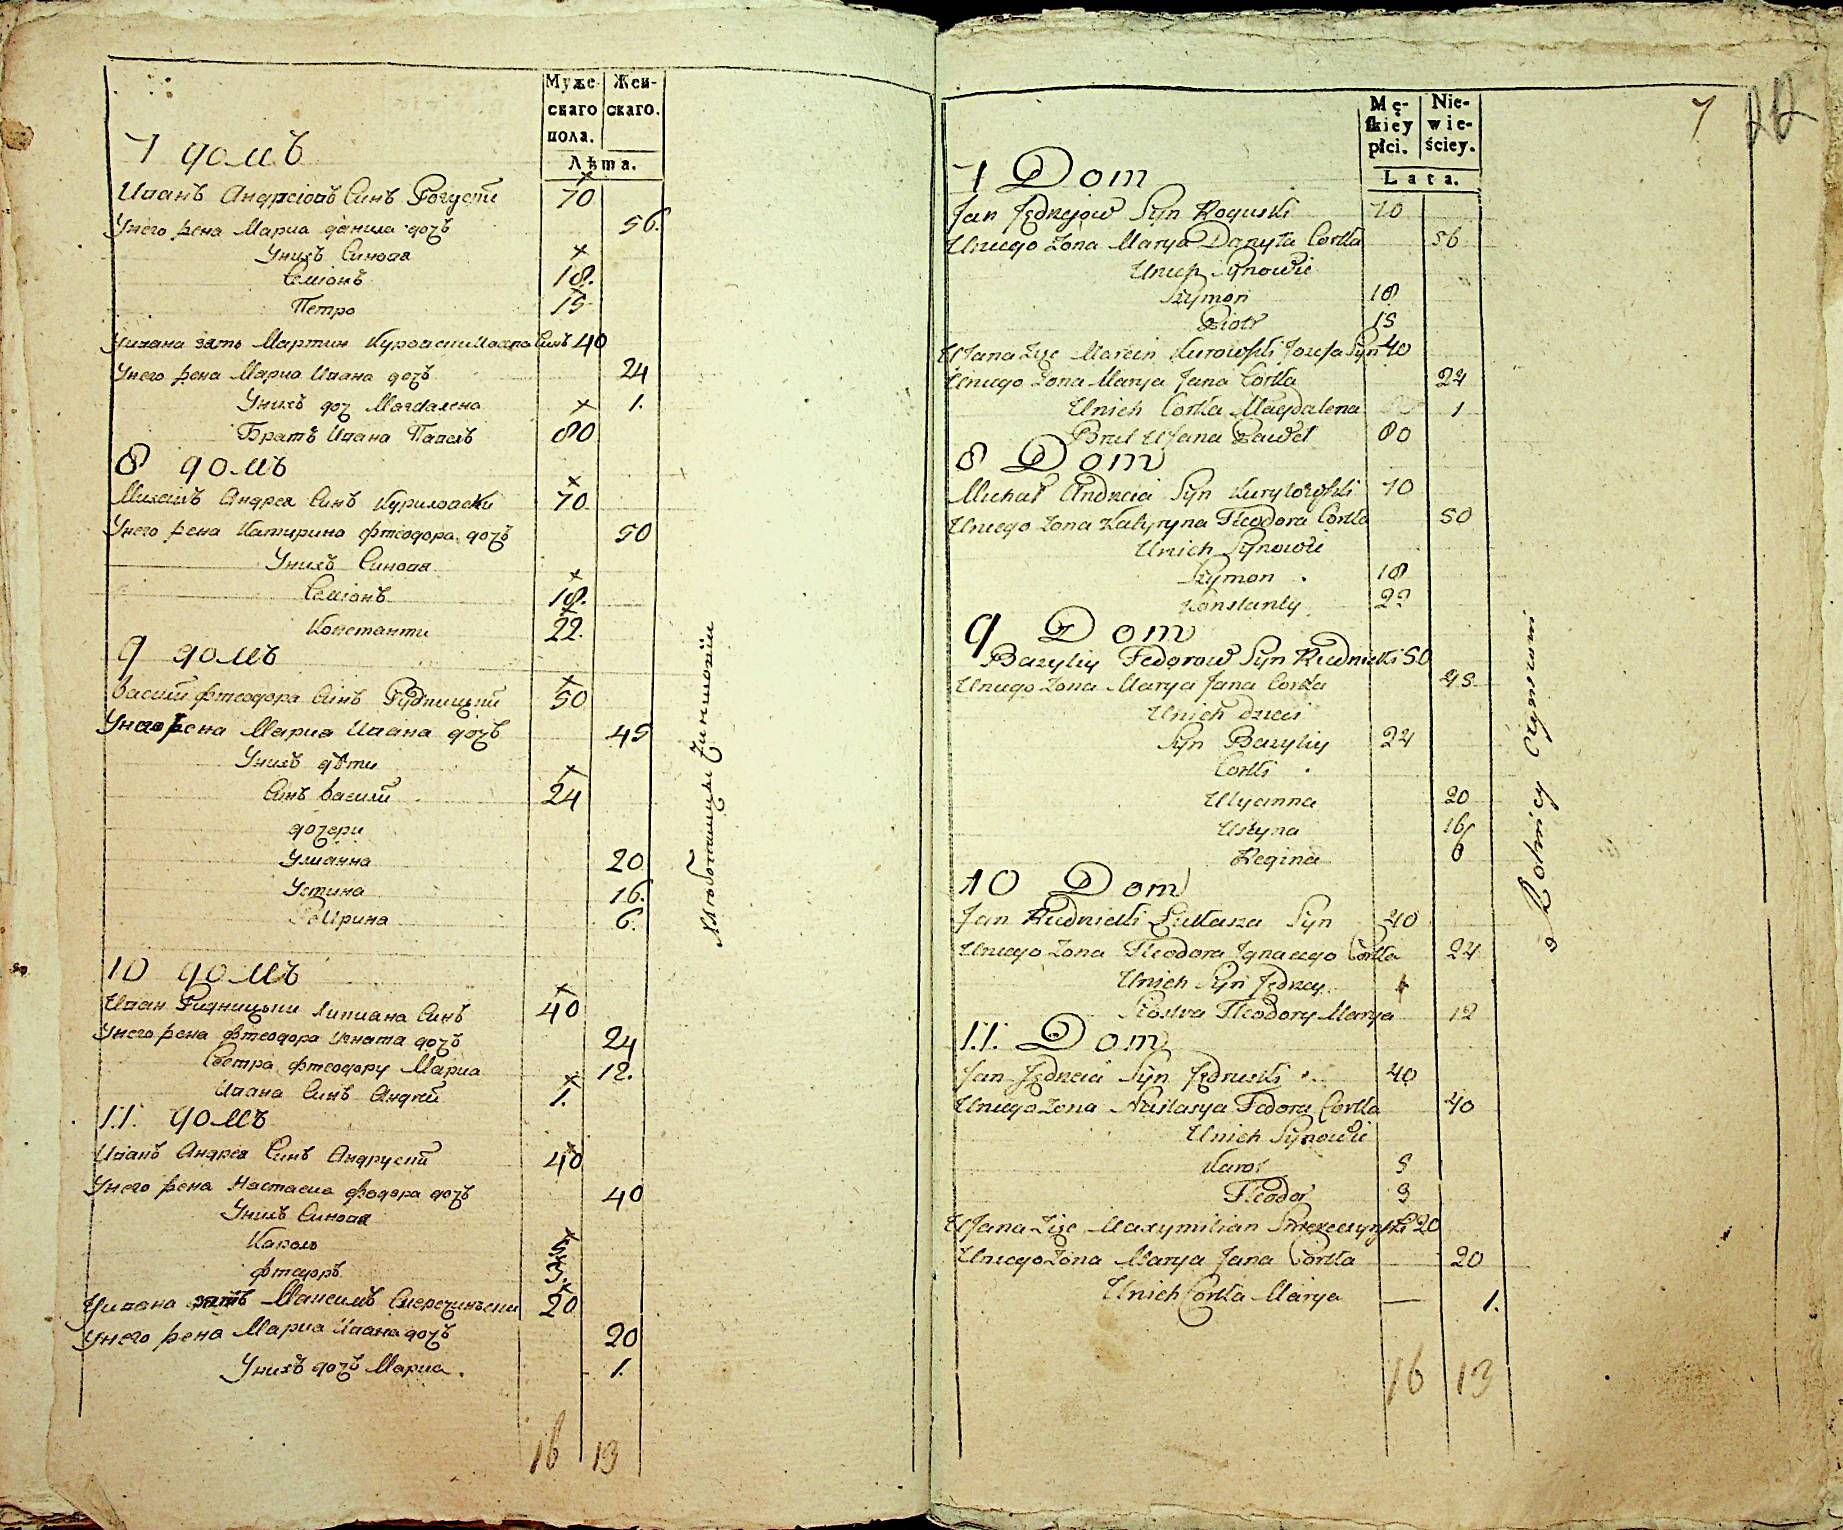 Муже- Жен-
скаго скаго.
пола.
Лѣта.
7 домъ
Иванъ Андрѣiовъ Синъ Рогускi 70
Унего жена Мариа данила дочъ 56.
Унихъ Синова
Семiонъ 18.
Петро 15
Уивана зять Мартин Куровски Иосепа Синъ 40
Унего жена Мариа Ивана дочъ 24
Унихъ доч Магdалена 1.
Братъ Ивана Павелъ 80
8 домъ
Михаилъ Андрея Синъ Куриловски 70
Унего жена Катирина фтеодора дочъ 50
Унихъ Синова
Семiонъ 18.
Константи 22.
9 домъ
Василий фтеодора Синъ Рудницкий 50
Унего жена Мариа Ивана дочъ 45
Унихъ дѣти
Синъ василий 24
дочери
Улианна 20
Устина 16.
Ирина 6.
10 домъ
Иван Рудницкии Синъ 40
Унего жена фтеодора Игната дочъ 24
Сѣстра фтеодору Мариа 12.
Ивана Синъ Андрiй 1.
11. домъ
Иванъ Андрея Синъ Андруский 40
Унего жена Настасиа федора дочъ 40
Унихъ Синова
Кароль 5
фтеодоръ 3.
Уивана зятъ Максимъ Смеречинъски 20
Унего жена Мариа Ивана дочъ 20
Унихъ дочъ Мариа. 1.
16 13
Чиншовiи
7
Mę- Nie-
skiey wie-
płci. ściey.
Lata.
7 Dom
Jan Jędrzejow Syn Roguski 70
Uniego Zona Marya Danyła Corka 56
Unich Synowie
Szymon 18
Piotr 15
U Jana Zięc Marcin Kurowski Jozefa Syn 40
Uniego Zona Marya Jana Corka 24
Unich Corka Magdalena 1
Brat U Jana Paweł 80
8 Dom
Michał Andrzeia Syn Kuryłowski 70
Uniego Zona Katyryna Fteodora Corka 50
Unich Synowie
Szymon 18
Konstanty 22
9 Dom
Bazyliy Fedorow Syn Rudnicki 50
Uniego Zona Marya Jana Corka 45
Unich dzieci
Syn Bazyliy 24
Corki
Ulyanna 20
Ustyna 16
Regina 6
10 Dom
Jan Rudnicki Łukasza Syn 40
Uniego Zona Fteodora Ignacego Corka 24
Unich Syn Jędrzey 1
Siostra Fteodory Marya 12
11. Dom
Jan Jędrzeia Syn Jędruski 40
Uniego Zona Nastasya Fedora Corka 40
Unich Synowie
Karol 5
Fteodor 3
U Jana Zięc Maxymilian Smereczynski 20
Uniego Zona Marya Jana Corka 20
Unich Corka Marya — 1.
16 13
Rolnicy Czynszowi